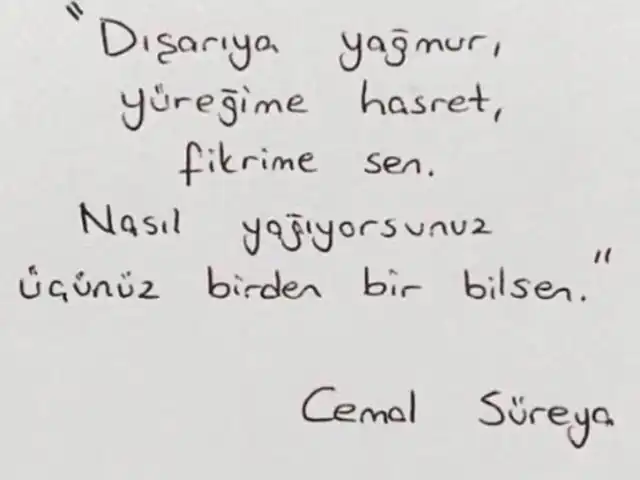 "Dışarıya yağmur,
yüreğime hasret,
fikrime sen.
Nasıl yağıyorsunuz
üçünüz birden bir bilsen."
Cemal Süreya